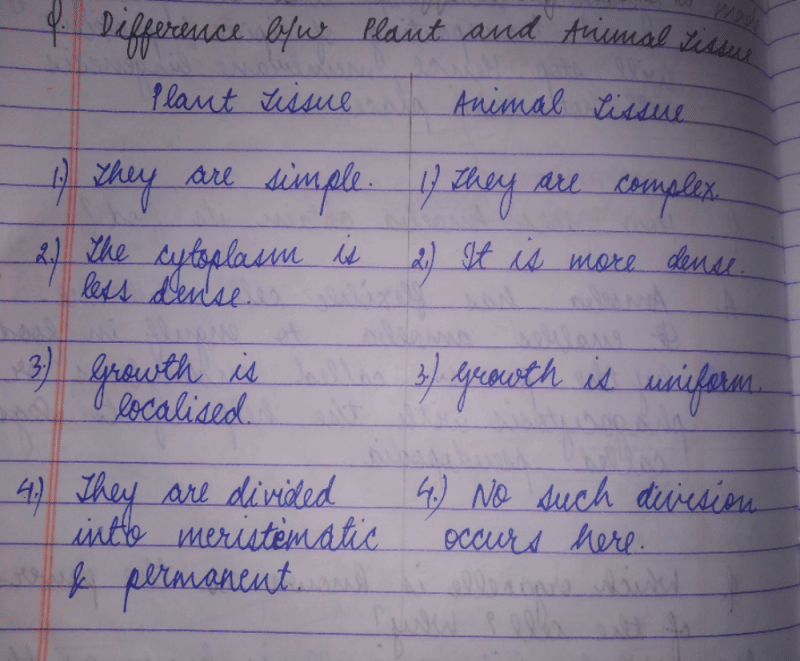 Q. Difference b/w Plant and Animal Tissue
Plant Tissue
Animal Tissue
1.) They are simple.
1.) They are complex.
2.) The cytoplasm is
less dense.
2.) It is more dense.
3.) Growth is
localised.
3.) Growth is uniform.
4.) They are divided
into meristematic
& permanent.
4.) No such division
occurs here.